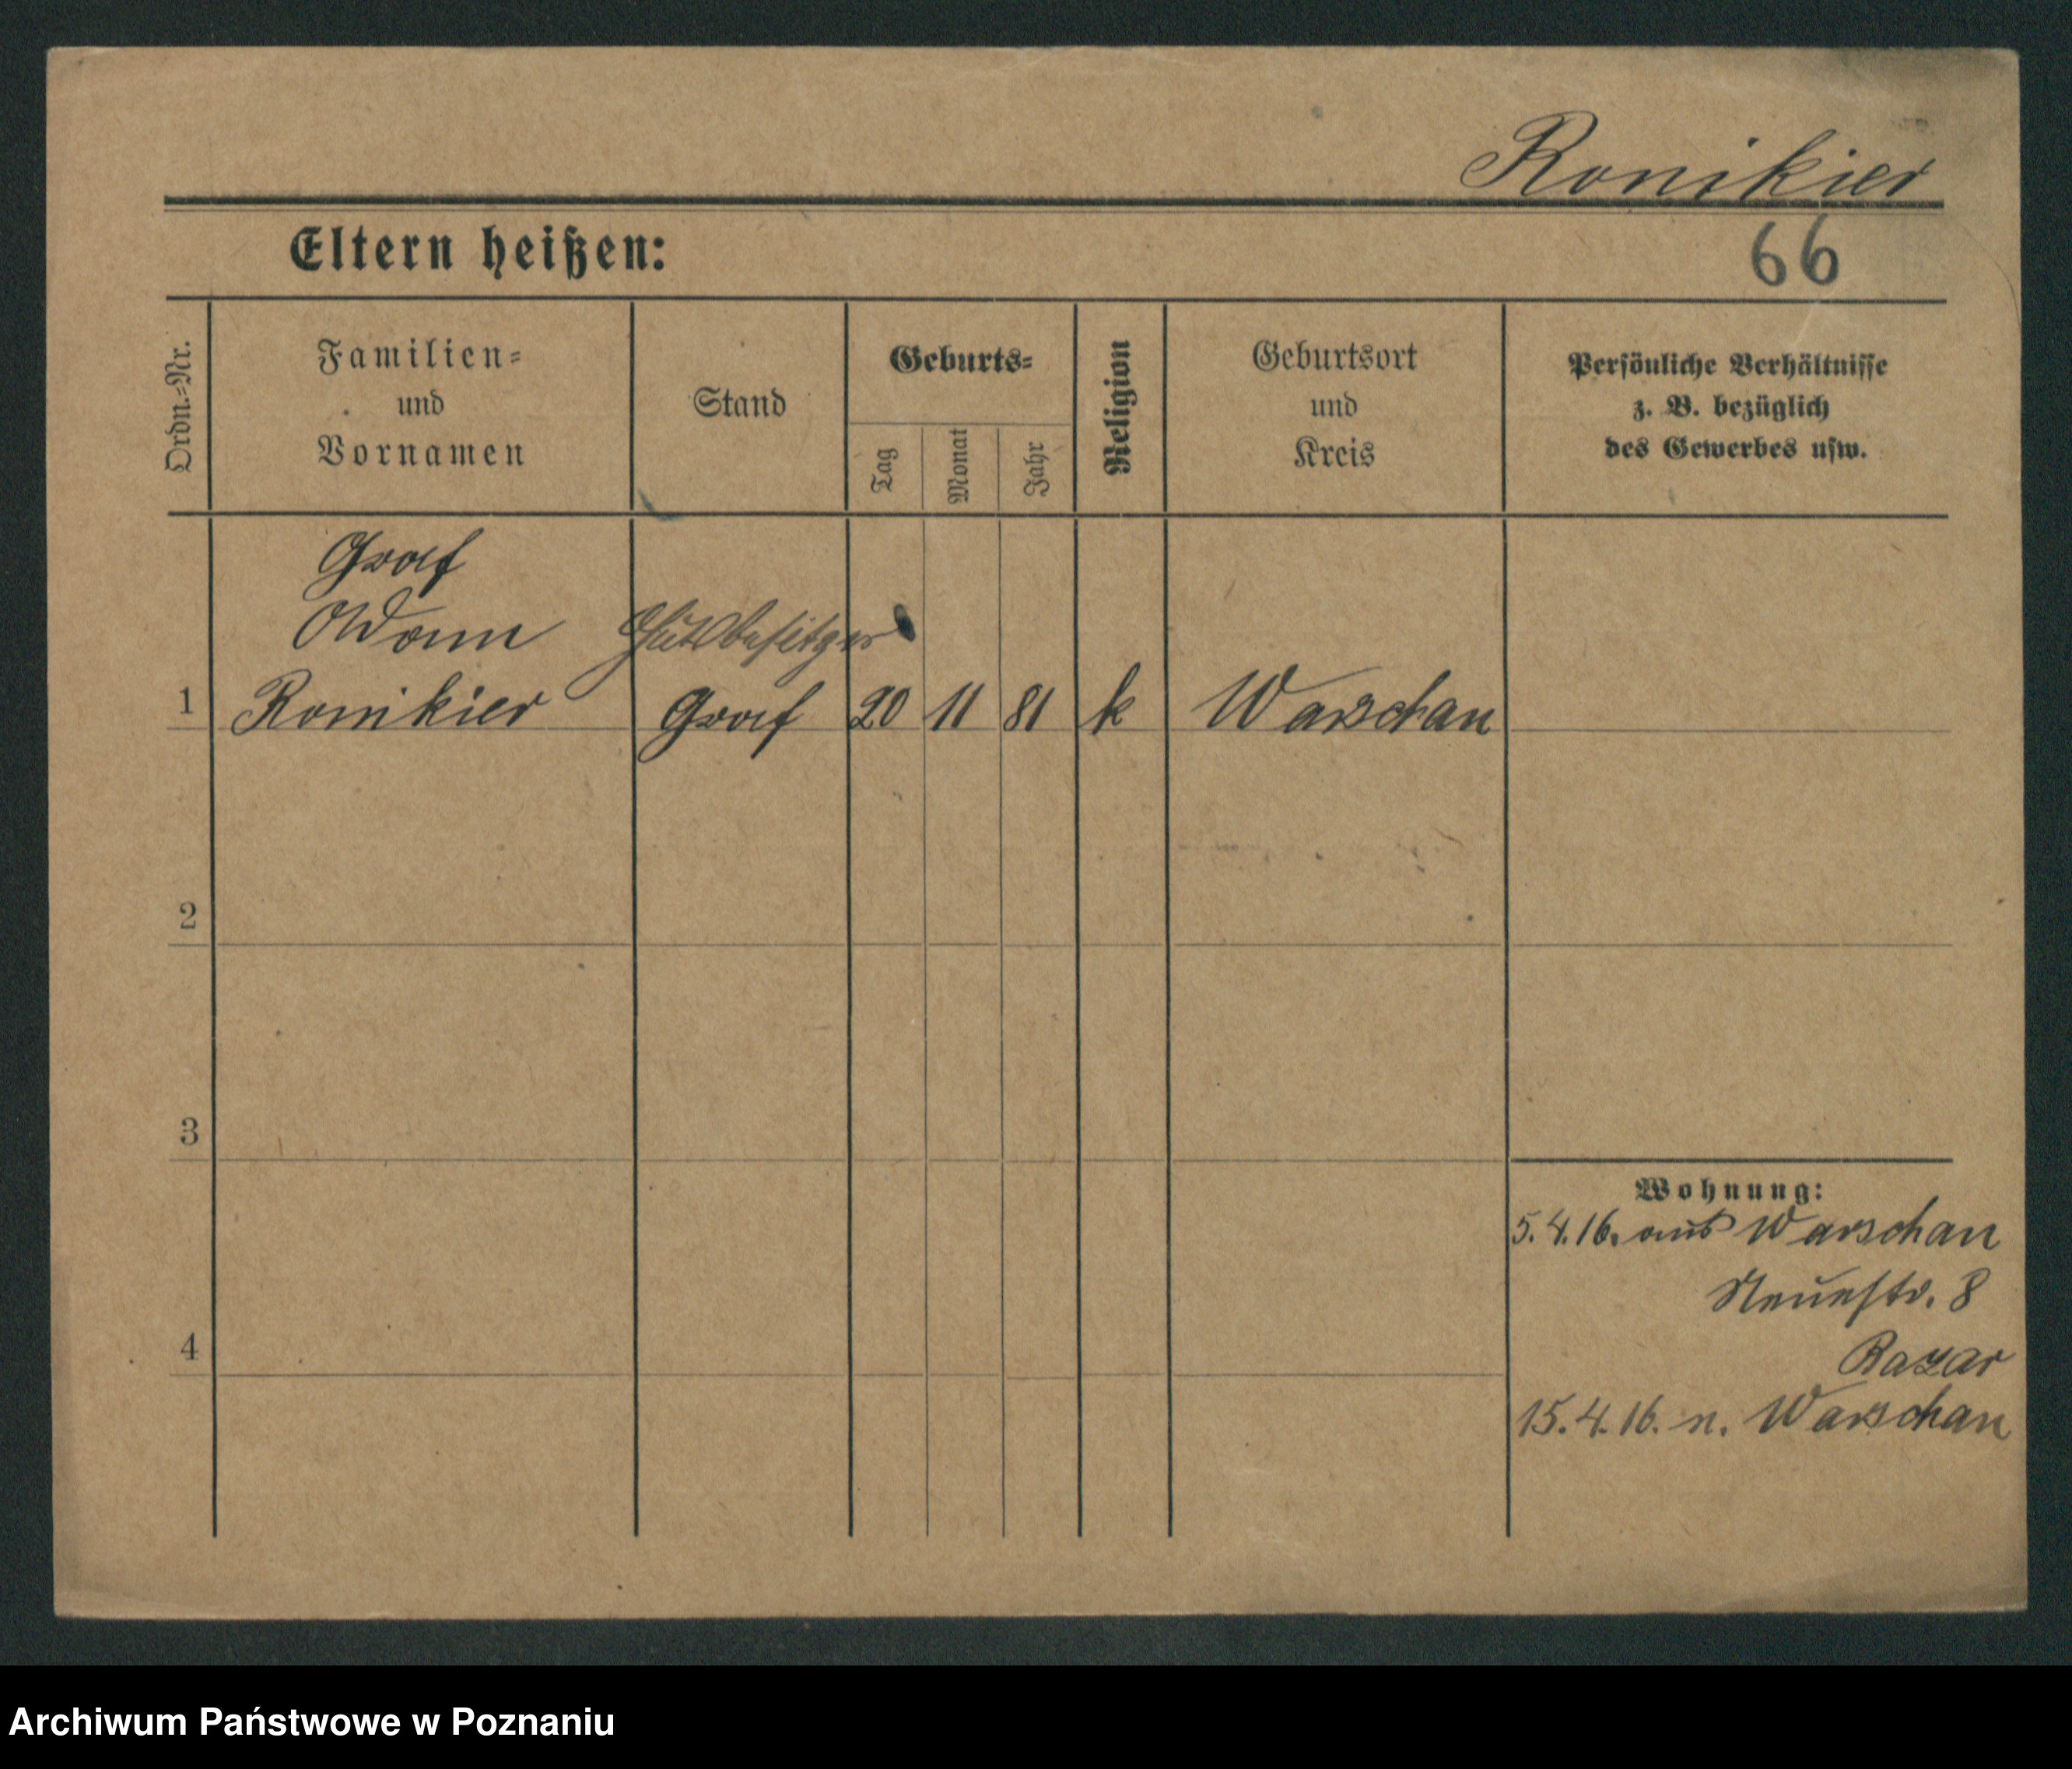 Ronikier
Eltern heißen:
66
Ordn.=Nr.
Familien=
und
Vornamen
Stand
Geburts=
Tag
Monat
Jahr
Religion
Geburtsort
und
Kreis
Persönliche Verhältnisse
z. B. bezüglich
des Gewerbes usw.
Graf
Adam
Gutsbesitzer
1 Ronikier Graf 20 11 81 k Warschau
2
3
4
Wohnung:
5.4.16. aus Warschau
Neuestr. 8
Bazar
15.4.16. n. Warschau
Archiwum Państwowe w Poznaniu